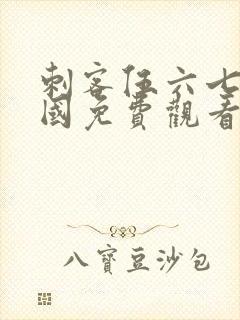 刺客伍六七
國免費觀看
八寶豆沙包